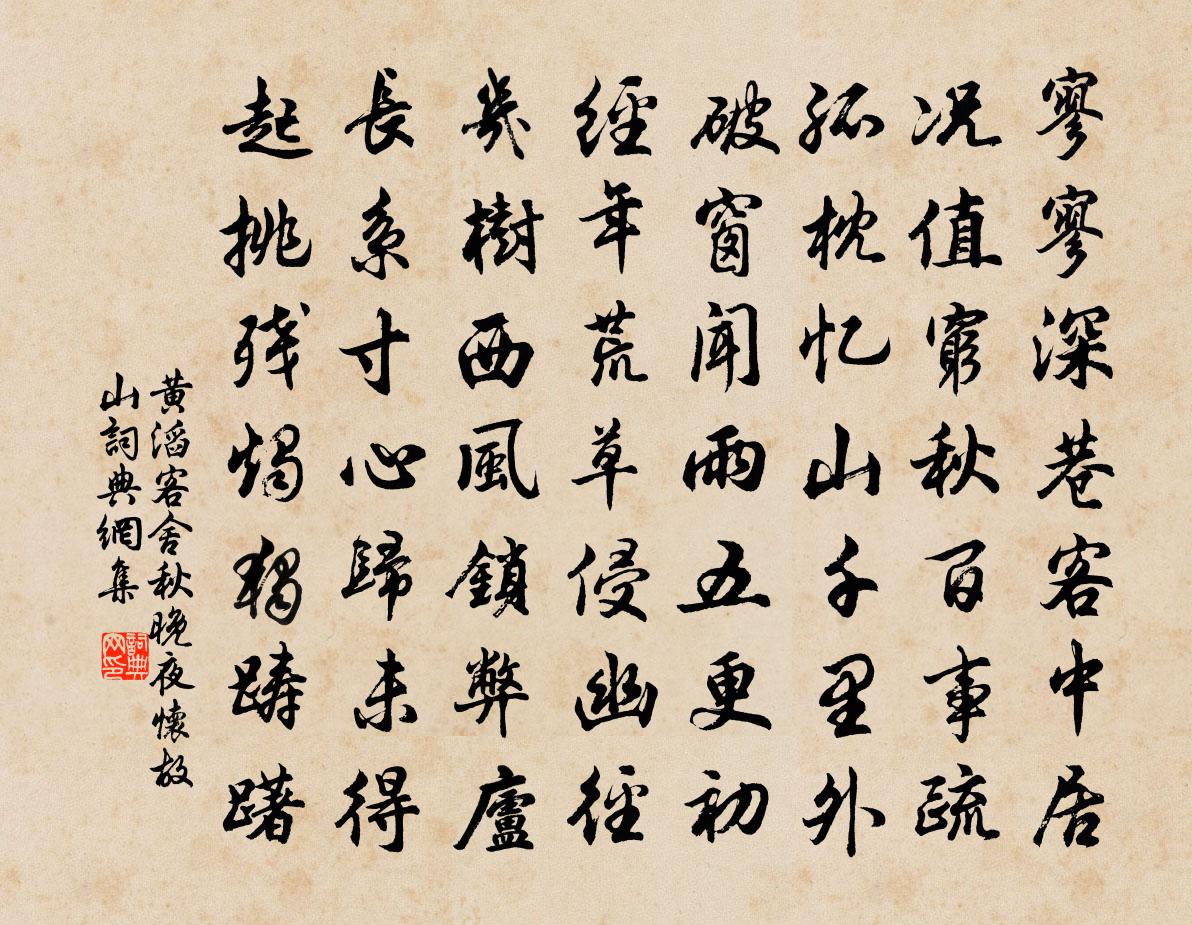 寥寥深巷客中居
况值窮秋百事疏
孤枕忆山千里外
破窗聞雨五更初
經年荒草侵幽徑
幾樹西風鎖弊廬
長系寸心歸未得
起挑残燭獨躊躇
黄滔客舍秋晚夜懷故
山詞典網集
詞典
网印